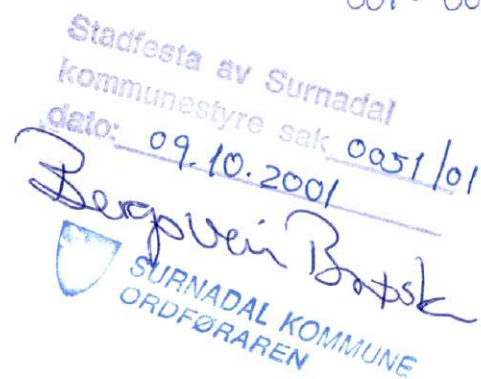 Stadfesta av Surnadal
kommunestyre sak 0051/01
dato: 09.10.2001
SURNADAL KOMMUNE
ORDFØRAREN